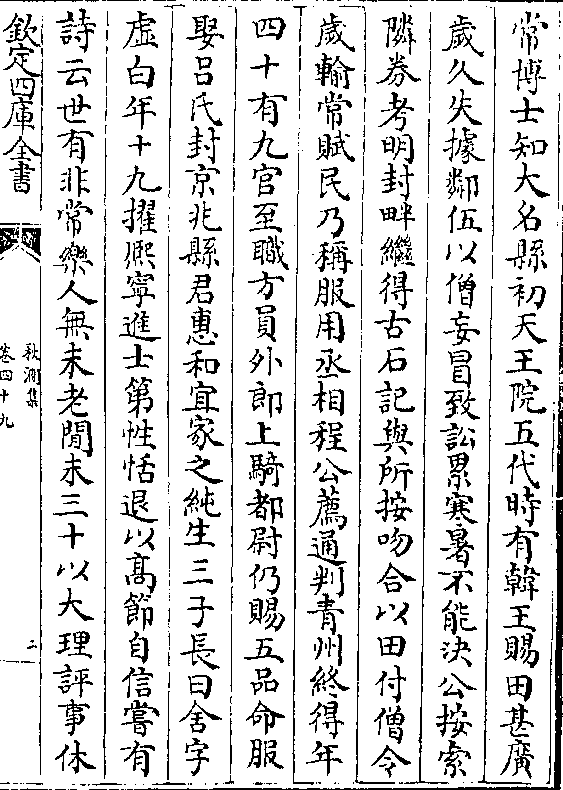 常博士知大名縣初天王院五代時有韓王賜田甚廣
歲久失據鄰伍以僧妄冒致訟累寒暑不能決公按索
隣券考明封畔繼得古石記與所按吻合以田付僧令
歲輸常賦民乃稱服用丞相程公薦通判青州終得年
四十有九官至職方員外郎上騎都尉仍賜五品命服
娶吕氏封京兆縣君惠和宜家之純生三子長曰舍字
虚白年十九擢熈寧進士第性恬退以髙節自信嘗有
詩云世有非常樂人無未老閒未三十以大理評事休
欽定四庫全書
秋澗集
卷四十九
二